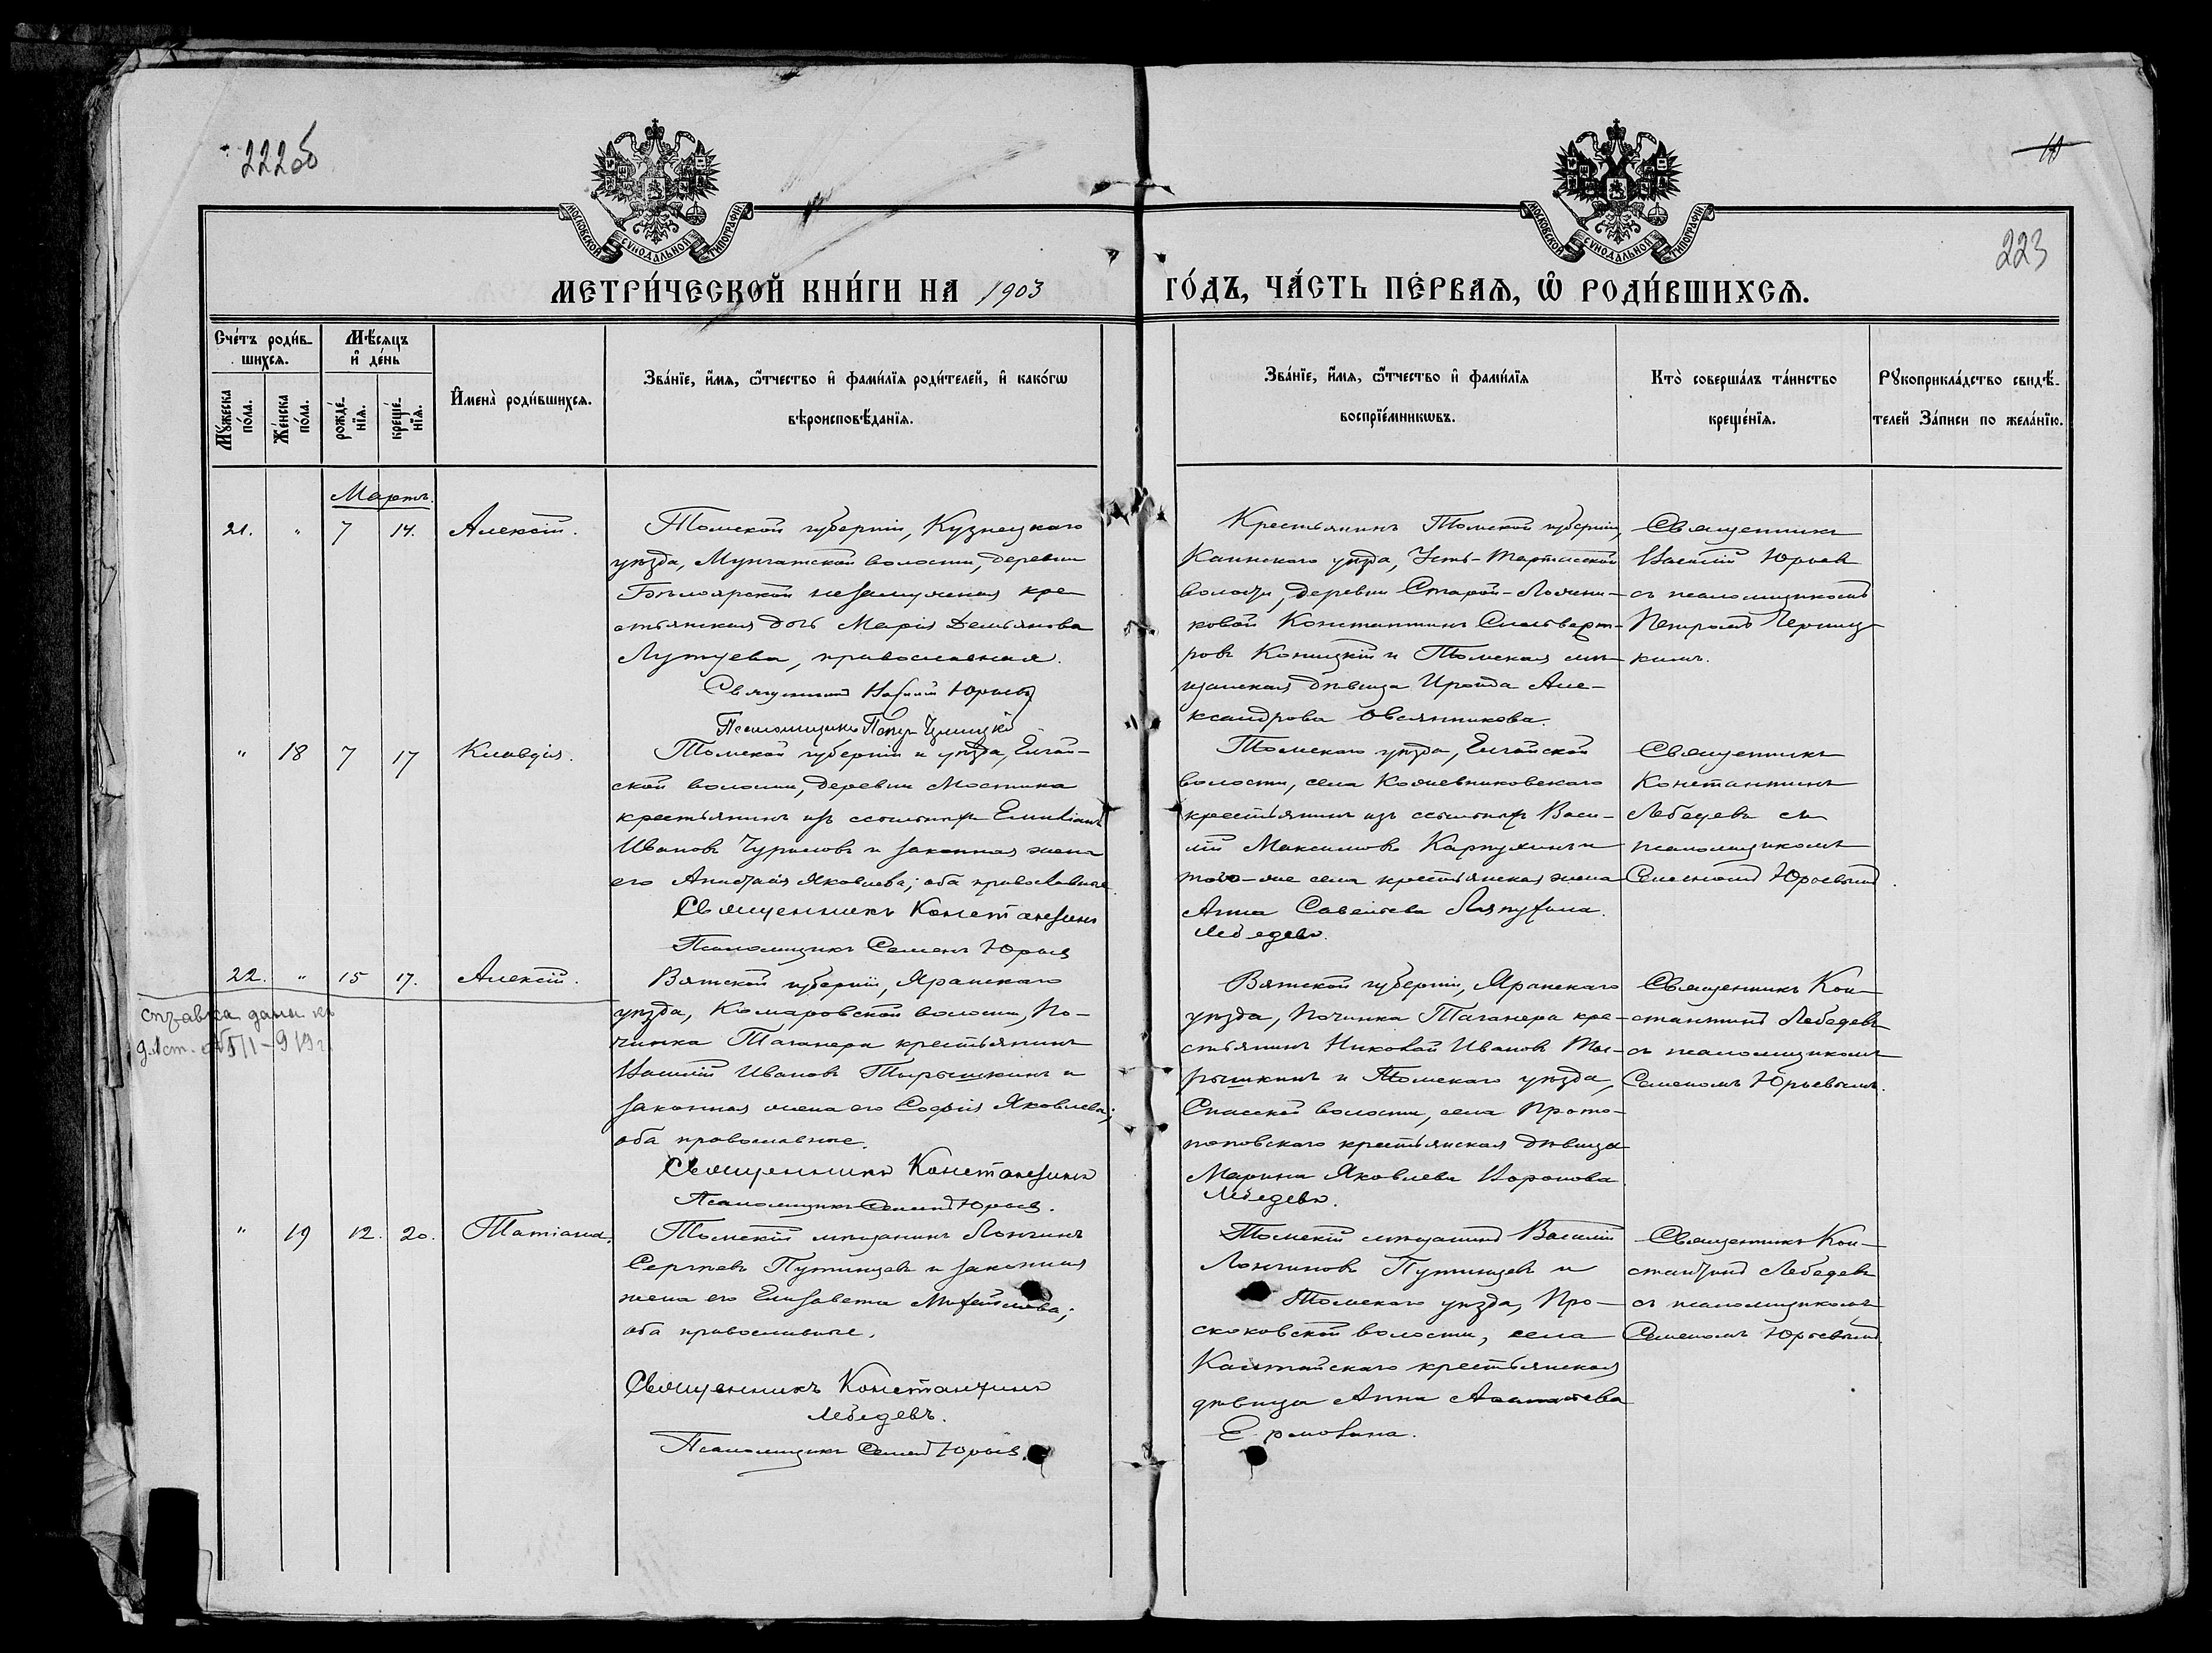 222об
10
223
МОСКОВСКОЙ СѴНОДАЛЬНОЙ ТИПОГРАФІИ
МОСКОВСКОЙ СѴНОДАЛЬНОЙ ТИПОГРАФІИ
МЕТРИ́ЧЕСКОЙ КНИ́ГИ НА 1903
ГО́ДЪ, ЧА́СТЬ ПЕ́РВАѦ, Ѡ҆ РОДИ́ВШИХСѦ.
Сче́тъ роди́в-
шихсѧ.
Мѣ́сѧцъ
и҆ де́нь
Мꙋ́жеска
по́ла.
Же́нска
по́ла.
рожде́-
нїѧ.
креще́-
нїѧ.
И҆мена̀ роди́вшихсѧ.
Зва́нїе, и҆́мѧ, ѻ҆́тчество и҆ фами́лїѧ роди́телей, и҆ како́гѡ
вѣроисповѣ́данїѧ.
Зва́нїе, и҆́мѧ, ѻ҆́тчество и҆ фами́лїѧ
воспрїе́мникѡвъ.
Кто̀ соверша́лъ та́инство
креще́нїѧ.
Рꙋкоприкла́дство свидѣ́-
телей За́писи по жела́нїю.
Мартъ.
21. " 7 14. Алексій.
Томской губерніи, Кузнецкаго
уѣзда, Мунгатской волости, деревни
Бѣлоярской незамужняя кре-
стьянская дочь Марія Демьянова
Лутуева, православная.
Священникъ Василій Юрьевъ
Псаломщикъ Петръ
Крестьянинъ Томской губерніи,
Каинскаго уѣзда, Усть-Тартасской
волости, деревни Старой-
ковой Константинъ
ровъ и Томская мѣ-
щанская дѣвица Ираида Але-
ксандрова Овсянникова.
Священникъ
Василій Юрьевъ
съ псаломщикомъ
Петромъ
кимъ.
" 18 7 17 Клавдія.
Томской губерніи и уѣзда, Елгай-
ской волости, деревни Мостика
крестьянинъ изъ ссыльныхъ Емиліанъ
Ивановъ Чуриловъ и законная жена
его Анастасія Яковлева; оба православные.
Священникъ Константинъ
Псаломщикъ Семенъ Юрьев
Томскаго уѣзда, Елгайской
волости, села Кожевниковскаго
крестьянинъ изъ ссыльныхъ Васи-
лій Максимовъ Карпухинъ и
того-же села крестьянская жена
Анна Савельева Ляпухина.
Лебедевъ.
Священникъ
Константинъ
Лебедевъ съ
псаломщикомъ
Семеномъ Юрьевымъ.
22. " 15 17. Алексій.
справка дана къ
Вятской губерніи, Яранскаго
уѣзда, Комаровской волости, По-
чинка Таганера крестьянинъ
Василій Ивановъ Тырышкинъ и
законная жена его Софія Яковлева;
оба православные.
Священникъ Константинъ
Псаломщикъ Семенъ Юрьев.
Вятской губерніи, Яранскаго
уѣзда, Починка Таганера кре-
стьянинъ Николай Ивановъ Ты-
рышкинъ и Томскаго уѣзда,
Спасской волости, села Прото-
поповскаго крестьянская дѣвица
Марина Яковлева Воронова
Лебедевъ.
Священникъ Кон-
стантинъ Лебедевъ
съ псаломщикомъ
Семеномъ Юрьевымъ.
" 19 12. 20. Татіана.
Томскій мѣщанинъ Лонгинъ
Сергѣевъ Путинцевъ и законная
жена его Елисавета;
оба православные.
Священникъ Константинъ
Лебедевъ.
Псаломщикъ Семенъ Юрьев.
Томскій мѣщанинъ Василій
Лонгиновъ Путинцевъ и
Томскаго уѣзда, Про-
скоковской волости, села
крестьянская
дѣвица Анна
Ермолина.
Священникъ Кон-
стантинъ Лебедевъ
съ псаломщикомъ
Семеномъ Юрьевымъ.